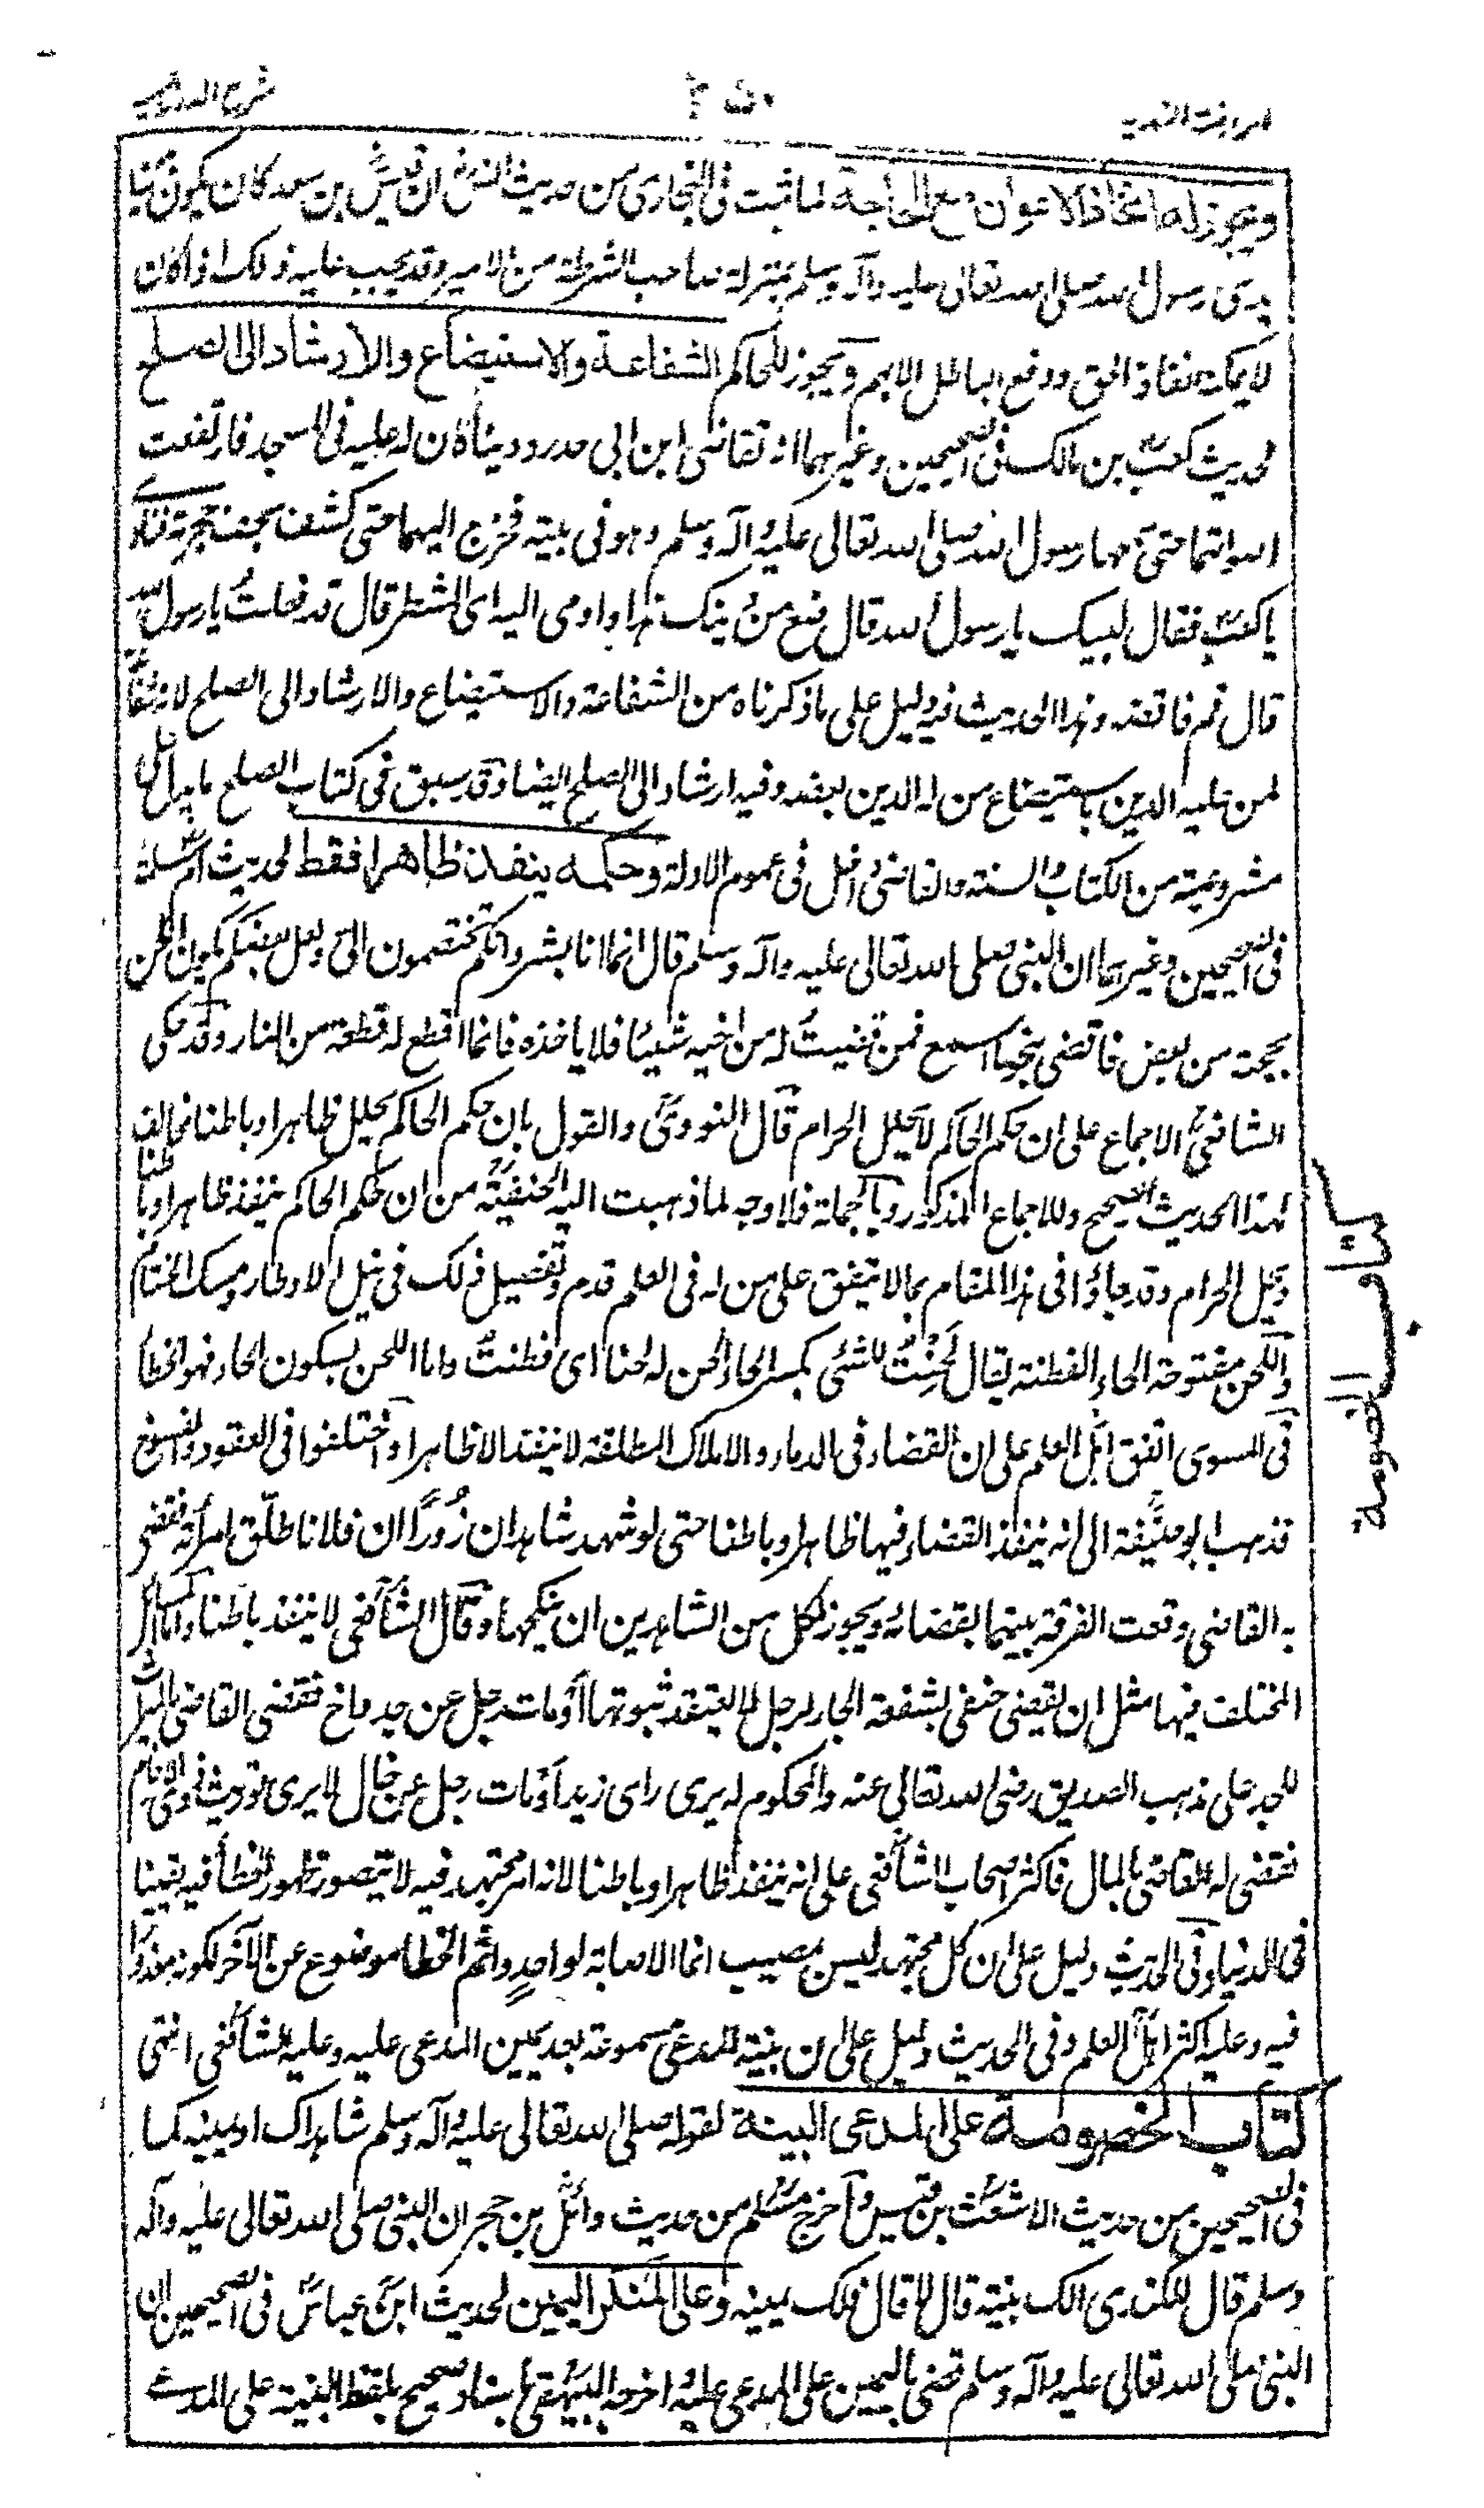 الروضة الندية ٢٥٠ شرح الدرر البهية
ويجوز له اتخاذ الاعوان مع الحاجة لما ثبت فى البخارى من حديث انس ان قيس بن سعد كان يكون بين
يدى رسول الله صلى الله تعالى عليه وآله وسلم بمنزلة صاحب الشرطة من الامير وقد يجب عليه ذلك اذا كان
لا يمكنه نفاذ الحق ودفع الباطل الا بهم ويجوز للحاكم الشفاعة والاستيضاع والارشاد الى الصلح
لحديث كعب بن مالك فى الصحيحين وغيرهما انه تقاضى ابن ابى حدرد دينا كان له عليه فى المسجد فارتفعت
اصواتهما حتى سمعها رسول الله صلى الله تعالى عليه وآله وسلم وهو فى بيته فخرج اليهما حتى كشف سجف حجرته فنادى
يا كعب فقال لبيك يا رسول الله قال ضع من دينك هذا واومى اليه اى الشطر قال قد فعلت يا رسول الله
قال قم فاقضه وهذا الحديث فيه دليل على ما ذكرناه من الشفاعة والاستيضاع والارشاد الى الصلح لانه شفاعة
لمن عليه الدين باستيضاع من له الدين بعضه وفيه ارشاد الى الصلح ايضا وقد سبق فى كتاب الصلح ما يدل على
مشروعيته من الكتاب والسنة والقاضى داخل فى عموم الادلة وحكمه ينفذ ظاهرا فقط لحديث ام سلمة
فى الصحيحين وغيرهما ان النبى صلى الله تعالى عليه وآله وسلم قال انما انا بشر وانكم تختصمون الىّ ولعل بعضكم يكون الحن
بحجته من بعض فاقضى بنحو ما اسمع فمن قضيت له من اخيه شيئا فلا ياخذه فانما اقطع له قطعة من النار وقد حكى
الشافعى الاجماع على ان حكم الحاكم لا يحلل الحرام قال النووى والقول بان حكم الحاكم يحلل ظاهرا وباطنا مخالف
لهذا الحديث الصحيح وللاجماع المذكور وبالجملة فلا وجه لما ذهبت اليه الحنفية من ان حكم الحاكم ينفذ ظاهرا وباطنا
ويحل الحرام وقد جاؤا فى هذا المقام بما لا ينفق على من له فى العلم قدم وتفصيل ذلك فى نيل الاوطار ومسك الختام
واللحن مفتوحة الحاء الفطنة يقال لَحِنْتُ للشئى بكسر الحاء الحن له لحنا اى فطنت واما اللحن بسكون الحاء فهو الخطأ
فى المسوى اتفق اهل العلم على ان القضاء فى الدماء والاملاك المطلقة لا ينفذ الا ظاهرا واختلفوا فى العقود والفسوخ
فذهب ابو حنيفة الى انه ينفذ القضاء فيها ظاهرا وباطنا حتى لو شهد شاهدان زُورًا ان فلانا طلّق امرأته فقضى
به القاضى وقعت الفرقة بينهما بقضائه ويجوز لكل من الشاهدين ان ينكحها وقال الشافعى لا ينفذ باطنا واما المسائل
المختلف فيها مثل ان يقضى حنفى بشفعة الجار لرجل لا يعتقد ثبوتها او مات رجل عن جد واخ فقضى القاضى بالميراث
للجد على مذهب الصديق رضى الله تعالى عنه والمحكوم له يرى راى زيد او مات رجل عن خال لا يرى توريث ذوى الارحام
فقضى له القاضى بالمال فاكثر اصحاب الشافعى على انه ينفذ ظاهرا وباطنا لانه امر مجتهد فيه لا يتصور ظهور الخطأ فيه يقينا
فى الدنيا وفى الحديث دليل على ان كل مجتهد ليس بمصيب انما الاصابة لواحدٍ واثم الخطا موضوع عن الآخر لكونه معذورا
فيه وعليه اكثر اهل العلم وفى الحديث دليل على ان بينة المدعى مسموعة بعد يمين المدعى عليه وعليه الشافعى انتهى
كتاب الخصومة على المدعى البينة لقوله صلى الله تعالى عليه وآله وسلم شاهداك او يمينه كما
فى الصحيحين من حديث الاشعث بن قيس واخرج مسلم من حديث وائل بن حجر ان النبى صلى الله تعالى عليه وآله
وسلم قال للكندى الك بينة قال لا قال فلك يمينه وعلى المنكر اليمين لحديث ابن عباس فى الصحيحين ان
النبى صلى الله تعالى عليه وآله وسلم قضى باليمين على المدعى عليه واخرجه البيهقى باسناد صحيح بلفظ البينة على المدعى
كتاب الخصومة